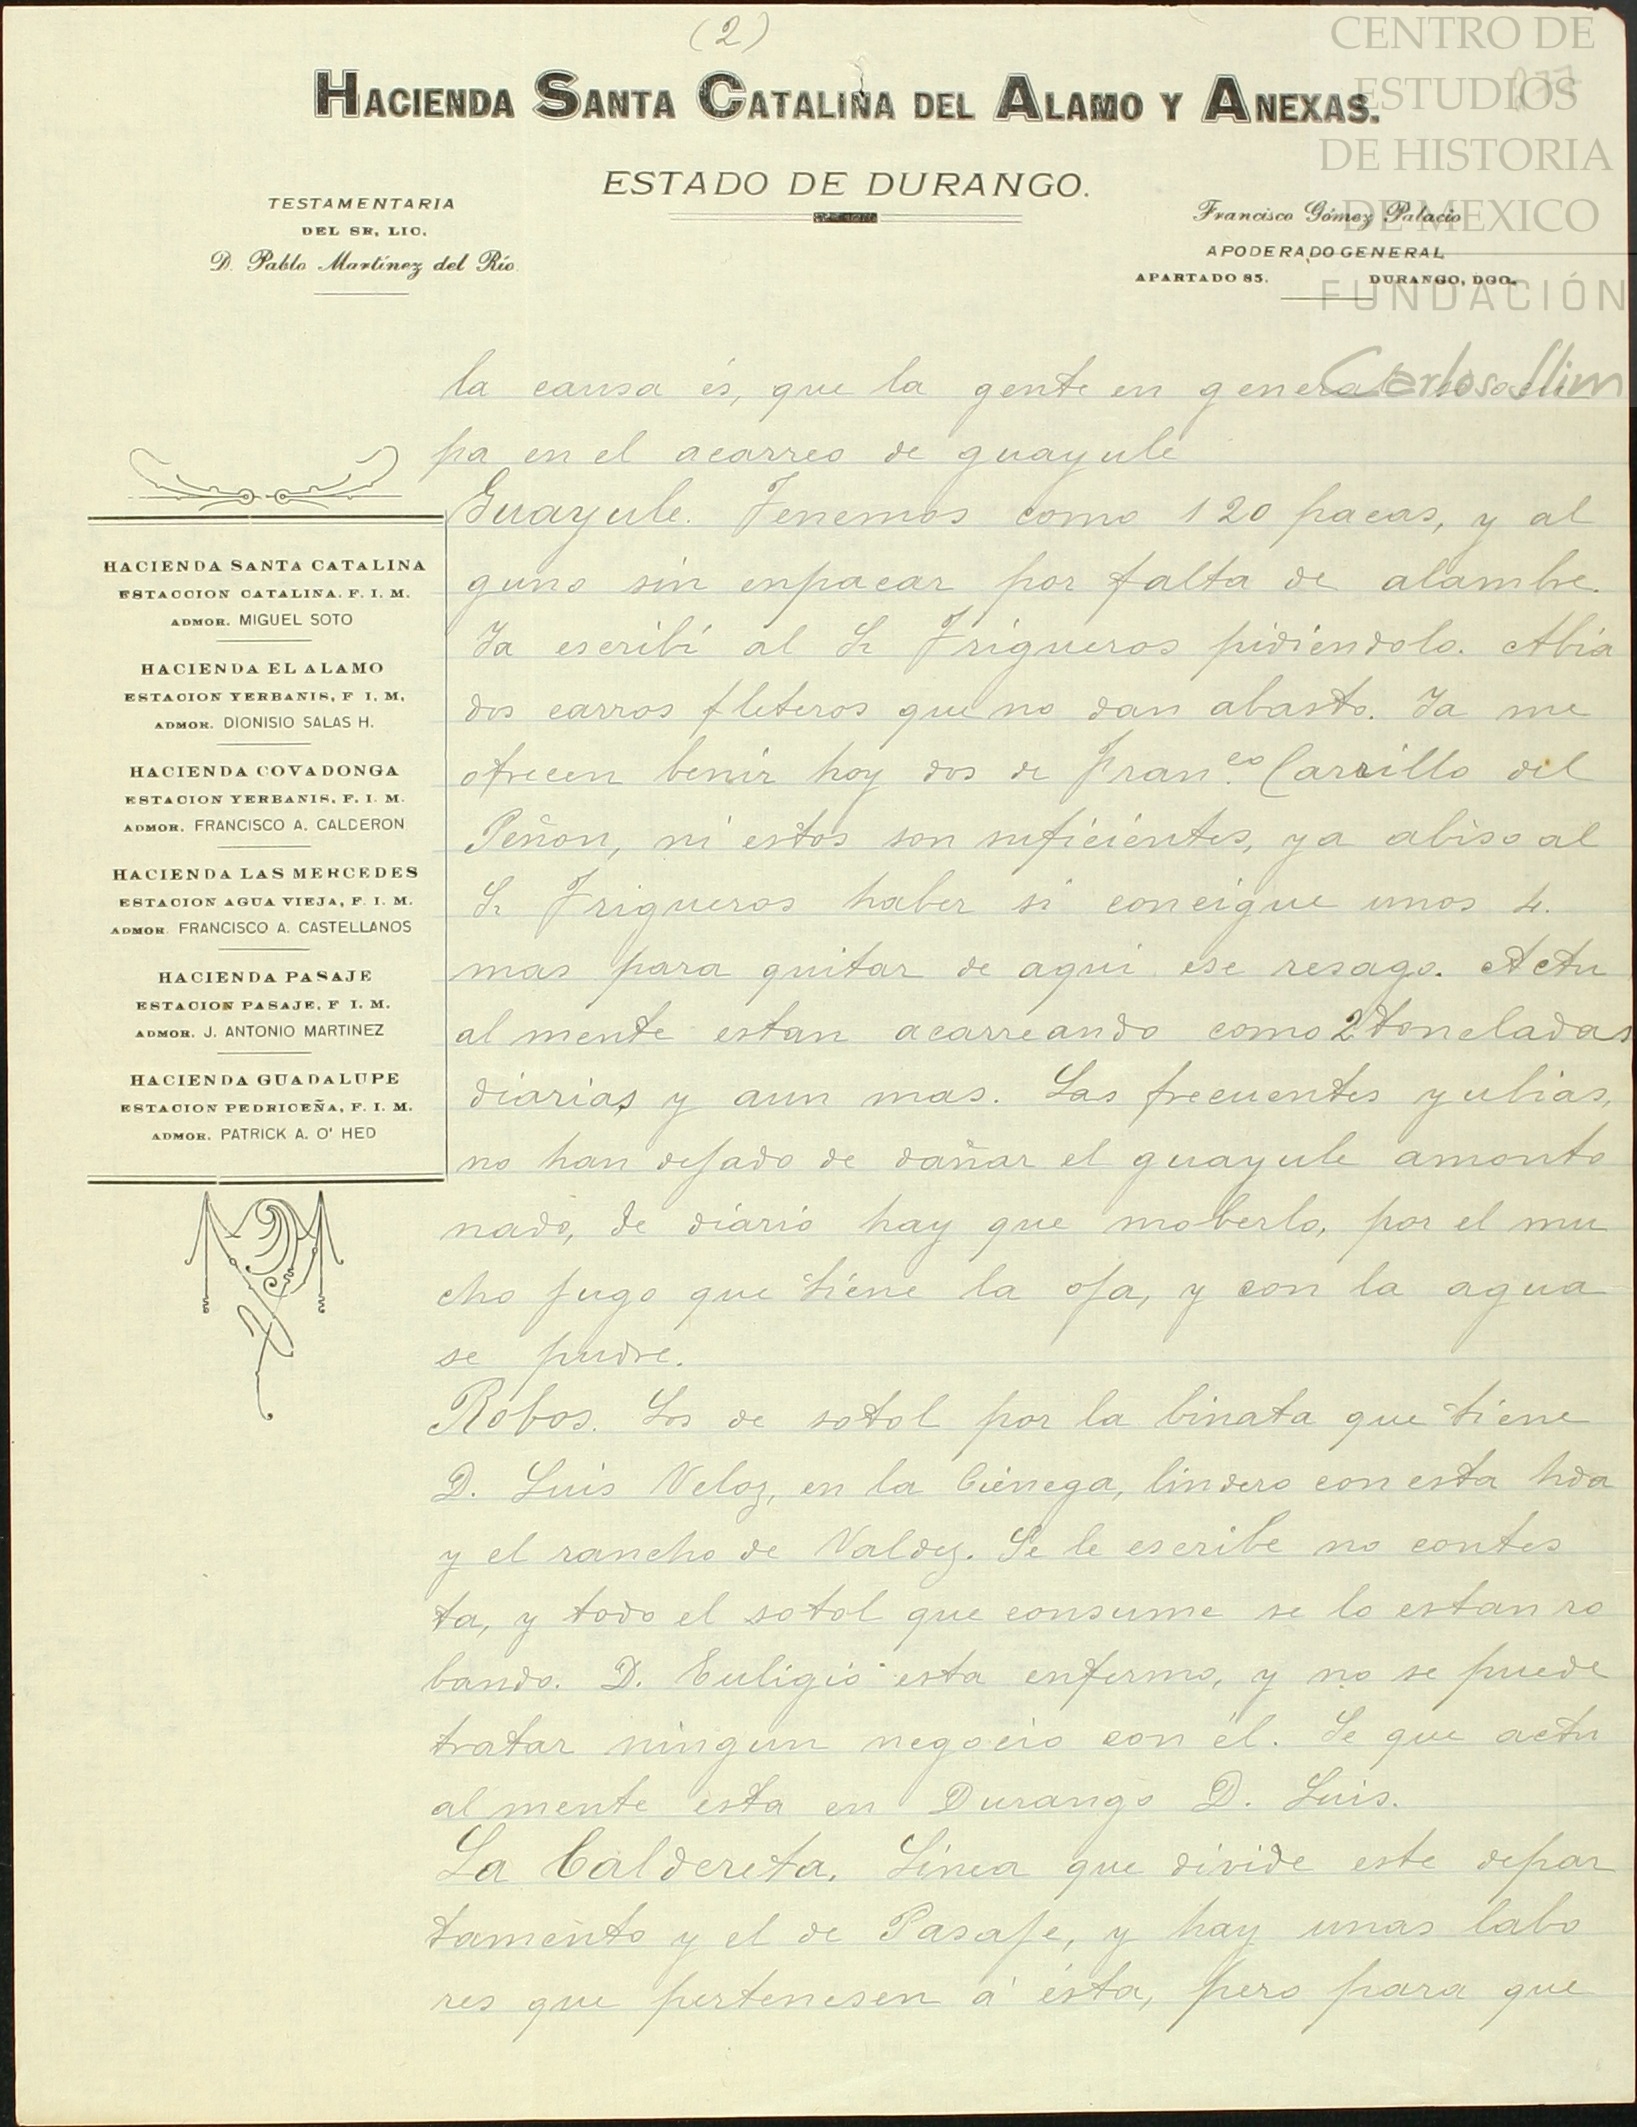 (2)
HACIENDA SANTA CATALINA DEL ALAMO Y ANEXAS.
ESTADO DE DURANGO.
TESTAMENTARIA
DEL SR, LIC.
D. Pablo Martínez del Río
Francisco Gómez Palacio
APODERADO GENERAL
APARTADO 85. DURANGO, DGO.
CENTRO DE
ESTUDIOS
DE HISTORIA
DE MEXICO
FUNDACIÓN
Carlos Slim
HACIENDA SANTA CATALINA
ESTACCION CATALINA. F. I. M.
ADMOR. MIGUEL SOTO
HACIENDA EL ALAMO
ESTACION YERBANIS, F I, M,
ADMOR. DIONISIO SALAS H.
HACIENDA COVADONGA
ESTACION YERBANIS, F. I. M.
ADMOR. FRANCISCO A. CALDERON
HACIENDA LAS MERCEDES
ESTACION AGUA VIEJA, F. I. M.
ADMOR. FRANCISCO A. CASTELLANOS
HACIENDA PASAJE
ESTACION PASAJE, F I. M.
ADMOR. J. ANTONIO MARTINEZ
HACIENDA GUADALUPE
ESTACION PEDRICEÑA, F. I. M.
ADMOR. PATRICK A. O' HED
la causa és, que la gente en general se ocu
pa en el acarreo de guayule
Guayule. Tenemos como 120 pacas, y al
guno sin enpacar por falta de alambre.
Ya escribí al Sr Trigueros pidiéndolo. Abia
dos carros fleteros que no dan abasto. Ya me
ofrecen benir hoy dos de Fran.co Carrillo del
Peñon, ni estos son suficientes, ya abiso al
Sr Trigueros haber si concigue unos 4.
mas para quitar de aqui ese resago. Actu
al mente estan acarreando como 2 toneladas
diarias y aun mas. Las frecuentes yubias,
no han dejado de dañar el guayule amonto
nado, de diario hay que moberlo, por el mu
cho jugo que tiene la oja, y con la agua
se pudre.
Robos. Los de sotol por la binata que tiene
D. Luis Veloz, en la Ciénega, lindero con esta hda
y el rancho de Valdez. Se le escribe no contes
ta, y todo el sotol que consume se lo estan ro
bando. D. Euligio esta enfermo, y no se puede
tratar ningun negocio con él. Se que actu
al mente esta en Durango D. Luis.
La Caldereta. Linea que divide este depar
tamento y el de Pasaje, y hay unas labo
res que pertenesen á ésta, pero para que